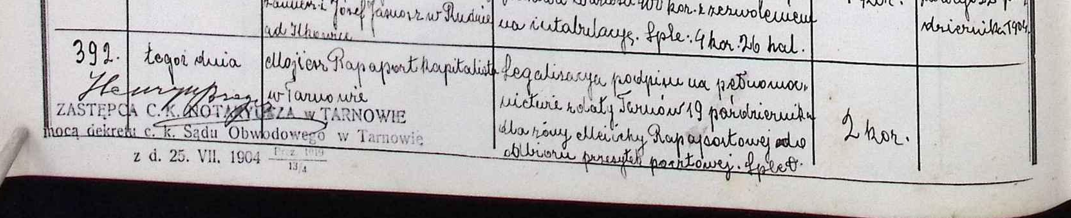 Józef Janiosz w Rudzie
ad Ilkowice
400 kor. z zezwoleniem
na intabulacyę. Spłc: 4 kor. 26 hal.
dziernika 1904.
392.
tegoż dnia
Mojżesz Rapaport kapitalista
w Tarnowie
Legalisacya podpisu na pełnomoc-
nictwie z daty Tarnów 19 października
dla żony Rapaportowej do
odbioru przesyłek pocztowej.
2 kor.
ZASTĘPCA C. K. NOTARYUSZA w TARNOWIE
mocą dekretu c. k. Sądu Obwodowego w Tarnowie
z d. 25. VII. 1904
Prez. 1919
13/4